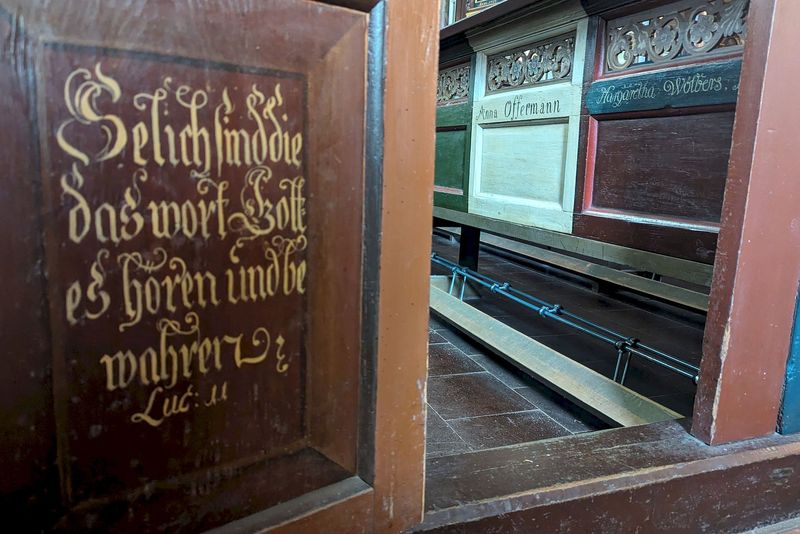 Selich sind die
das wort Gott
es hören und be
wahren
Luc: 11
Anna Offermann
Margaretha Wölbers